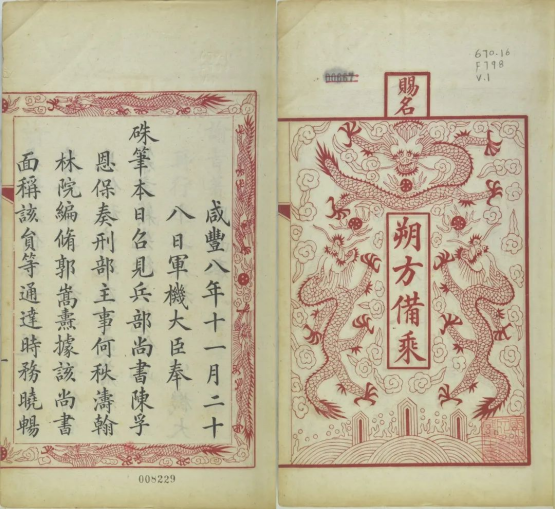 670.16
F798
V.1
賜名
朔方備乘
咸豐八年十一月二十
八日軍機大臣奉
硃筆本日召見兵部尚書陳孚
恩保奏刑部主事何秋濤翰
林院編脩郭嵩燾據該尚書
面稱該員等通達時務曉暢
008229